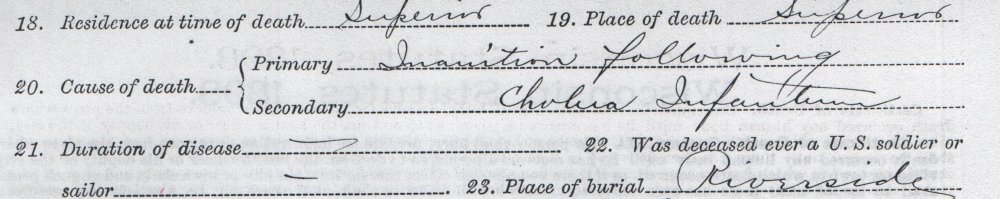 18. Residence at time of death Superior 19. Place of death Superior
20. Cause of death { Primary Inanition following
Secondary Cholera Infantum
21. Duration of disease — 22. Was deceased ever a U. S. soldier or
sailor — 23. Place of burial Riverside